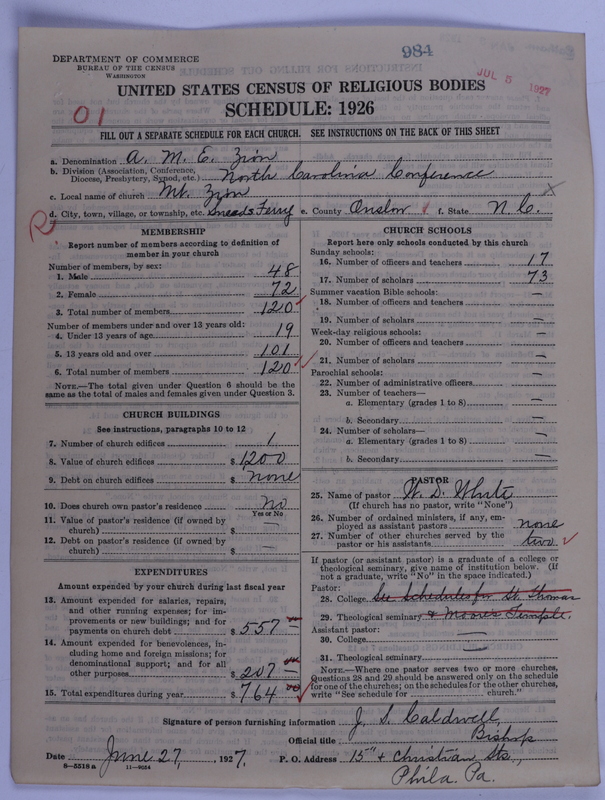 984
DEPARTMENT OF COMMERCE
BUREAU OF THE CENSUS
WASHINGTON
JUL 5 1927
UNITED STATES CENSUS OF RELIGIOUS BODIES
SCHEDULE: 1926
01
FILL OUT A SEPARATE SCHEDULE FOR EACH CHURCH. SEE INSTRUCTIONS ON THE BACK OF THIS SHEET
a. Denomination A. M. E. Zion
b. Division (Association, Conference, Diocese, Presbytery, Synod, etc.) North Carolina Conference
c. Local name of church Mt. Zion
d. City, town, village, or township, etc. Sneads Ferry e. County Onslow f. State N. C. X
R
MEMBERSHIP
Report number of members according to definition of
member in your church
Number of members, by sex:
1. Male 48
2. Female 72
3. Total number of members 120
Number of members under and over 13 years old:
4. Under 13 years of age 19
5. 13 years old and over 101
6. Total number of members 120
NOTE.—The total given under Question 6 should be
same as the total of males and females given under Question 3.
CHURCH BUILDINGS
See instructions, paragraphs 10 to 12
7. Number of church edifices 1
8. Value of church edifices $ 1200
9. Debt on church edifices $ none
10. Does church own pastor's residence No
Yes or No
11. Value of pastor's residence (if owned by
church) $ —
12. Debt on pastor's residence (if owned by
church) $ —
EXPENDITURES
Amount expended by your church during last fiscal year
13. Amount expended for salaries, repairs,
and other running expenses; for im-
provements or new buildings; and for
payments on church debt $ 557 —
14. Amount expended for benevolences, in-
cluding home and foreign missions; for
denominational support; and for all
other purposes $ 207 —
15. Total expenditures during year $ 764
CHURCH SCHOOLS
Report here only schools conducted by this church
Sunday schools:
16. Number of officers and teachers 17
17. Number of scholars 73
Summer vacation Bible schools:
18. Number of officers and teachers —
19. Number of scholars —
Week-day religious schools:
20. Number of officers and teachers —
21. Number of scholars —
Parochial schools:
22. Number of administrative officers —
23. Number of teachers—
a. Elementary (grades 1 to 8) —
b. Secondary —
24. Number of scholars—
a. Elementary (grades 1 to 8) —
b. Secondary —
PASTOR
25. Name of pastor W. D. White
(If church has no pastor, write "None")
26. Number of ordained ministers, if any, em-
ployed as assistant pastors none
27. Number of other churches served by the
pastor or his assistants two
If pastor (or assistant pastor) is a graduate of a college or
theological seminary, give name of institution below. (If
not a graduate, write "No" in the space indicated.)
Pastor:
28. College See Schedules for St. Thomas
29. Theological seminary & Moore's Temple.
Assistant pastor:
30. College —
31. Theological seminary
NOTE.—Where one pastor serves two or more churches,
Questions 28 and 29 should be answered only on the schedule
for one of the churches; on the schedules for the other churches,
write "See schedule for church."
Signature of person furnishing information J. S. Caldwell,
Official title Bishop
Date June 27, 1927. P. O. Address 15" & Christian Sts.,
8—5518 a 11—9034 Phila. Pa.